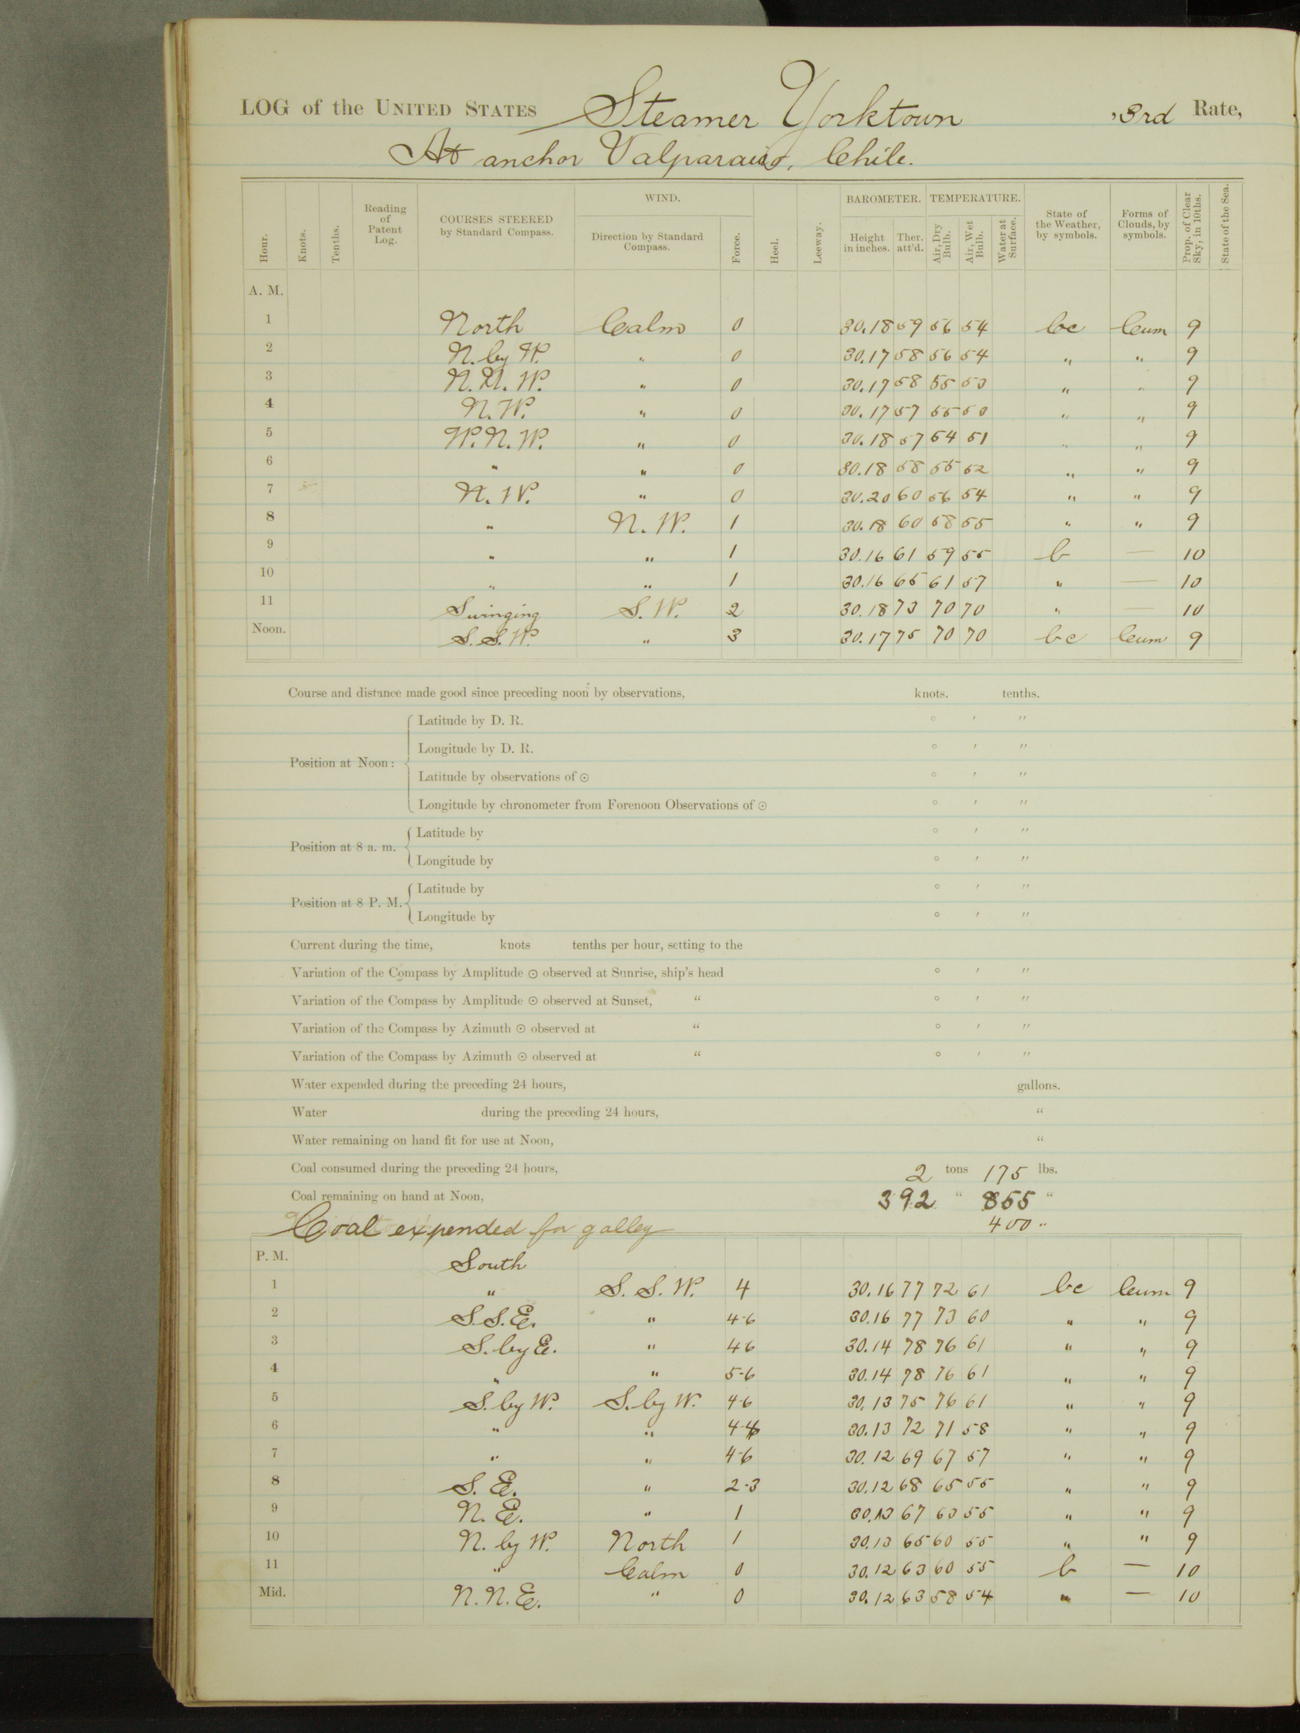 LOG of the UNITED STATES Steamer Yorktown , 3rd Rate,
At anchor Valparaiso, Chile.
Hour. Knots. Tenths. Reading of Patent Log. COURSES STEERED by Standard Compass. WIND. Direction by Standard Compass. Force. Heel. Leeway. BAROMETER. Height in inches. Ther. att'd. TEMPERATURE. Air, Dry Bulb. Air, Wet Bulb. Water at Surface. State of the Weather, by symbols. Forms of Clouds, by symbols. Prop. of Clear Sky, in 10ths. State of the Sea.
A. M.
1 North Calm 0 30.18 59 56 54 bc Cum 9
2 N. by W. " 0 30.17 58 56 54 " " 9
3 N. N. W. " 0 30.17 58 55 53 " " 9
4 N. W. " 0 30.17 57 55 50 " " 9
5 W. N. W. " 0 30.18 57 54 51 " " 9
6 " " 0 30.18 58 55 52 " " 9
7 N. W. " 0 30.20 60 56 54 " " 9
8 " N. W. 1 30.18 60 58 55 " " 9
9 " " 1 30.16 61 59 55 b — 10
10 " " 1 30.16 65 61 57 " — 10
11 Swinging S. W. 2 30.18 73 70 70 " — 10
Noon. S. S. W. " 3 30.17 75 70 70 bc Cum 9
Course and distance made good since preceding noon by observations, knots. tenths.
Position at Noon: Latitude by D. R. ° ′ ″
Longitude by D. R. ° ′ ″
Latitude by observations of ☉ ° ′ ″
Longitude by chronometer from Forenoon Observations of ☉ ° ′ ″
Position at 8 a. m. Latitude by ° ′ ″
Longitude by ° ′ ″
Position at 8 P. M. Latitude by ° ′ ″
Longitude by ° ′ ″
Current during the time, knots tenths per hour, setting to the
Variation of the Compass by Amplitude ☉ observed at Sunrise, ship's head ° ′ ″
Variation of the Compass by Amplitude ☉ observed at Sunset, " ° ′ ″
Variation of the Compass by Azimuth ☉ observed at " ° ′ ″
Variation of the Compass by Azimuth ☉ observed at " ° ′ ″
Water expended during the preceding 24 hours, gallons.
Water during the preceding 24 hours, "
Water remaining on hand fit for use at Noon, "
Coal consumed during the preceding 24 hours, 2 tons 175 lbs.
Coal remaining on hand at Noon, 392 " 855 "
Coal expended for galley 400 "
P. M. South
1 " S. S. W. 4 30.16 77 72 61 bc Cum 9
2 S. S. E. " 4-6 30.16 77 73 60 " " 9
3 S. by E. " 4-6 30.14 78 76 61 " " 9
4 " " 5-6 30.14 78 76 61 " " 9
5 S. by W. S. by W. 4-6 30.13 75 76 61 " " 9
6 " " 30.13 72 71 58 " " 9
7 " " 4-6 30.12 69 67 57 " " 9
8 S. E. " 2-3 30.12 68 65 55 " " 9
9 N. E. " 1 30.13 67 63 55 " " 9
10 N. by W. North 1 30.13 65 60 55 " " 9
11 " Calm 0 30.12 63 60 55 b — 10
Mid. N. N. E. " 0 30.12 63 58 54 " — 10